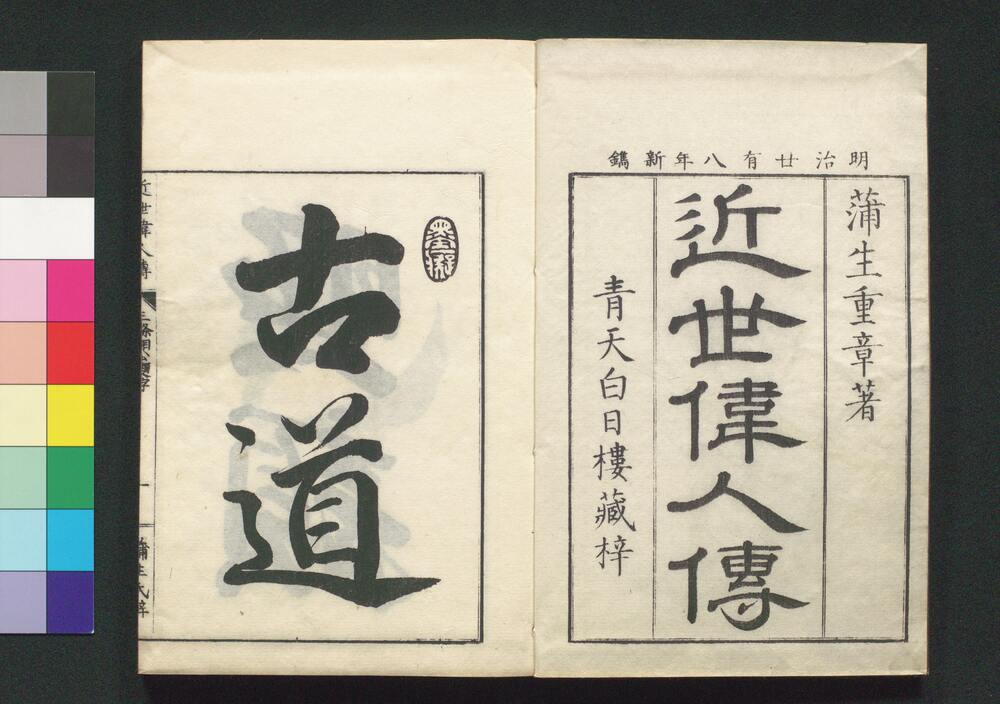 明治廿有八年新鐫
蒲生重章著
近世偉人傳
青天白日樓藏梓
古道
近世偉人傳
蒲生氏梓